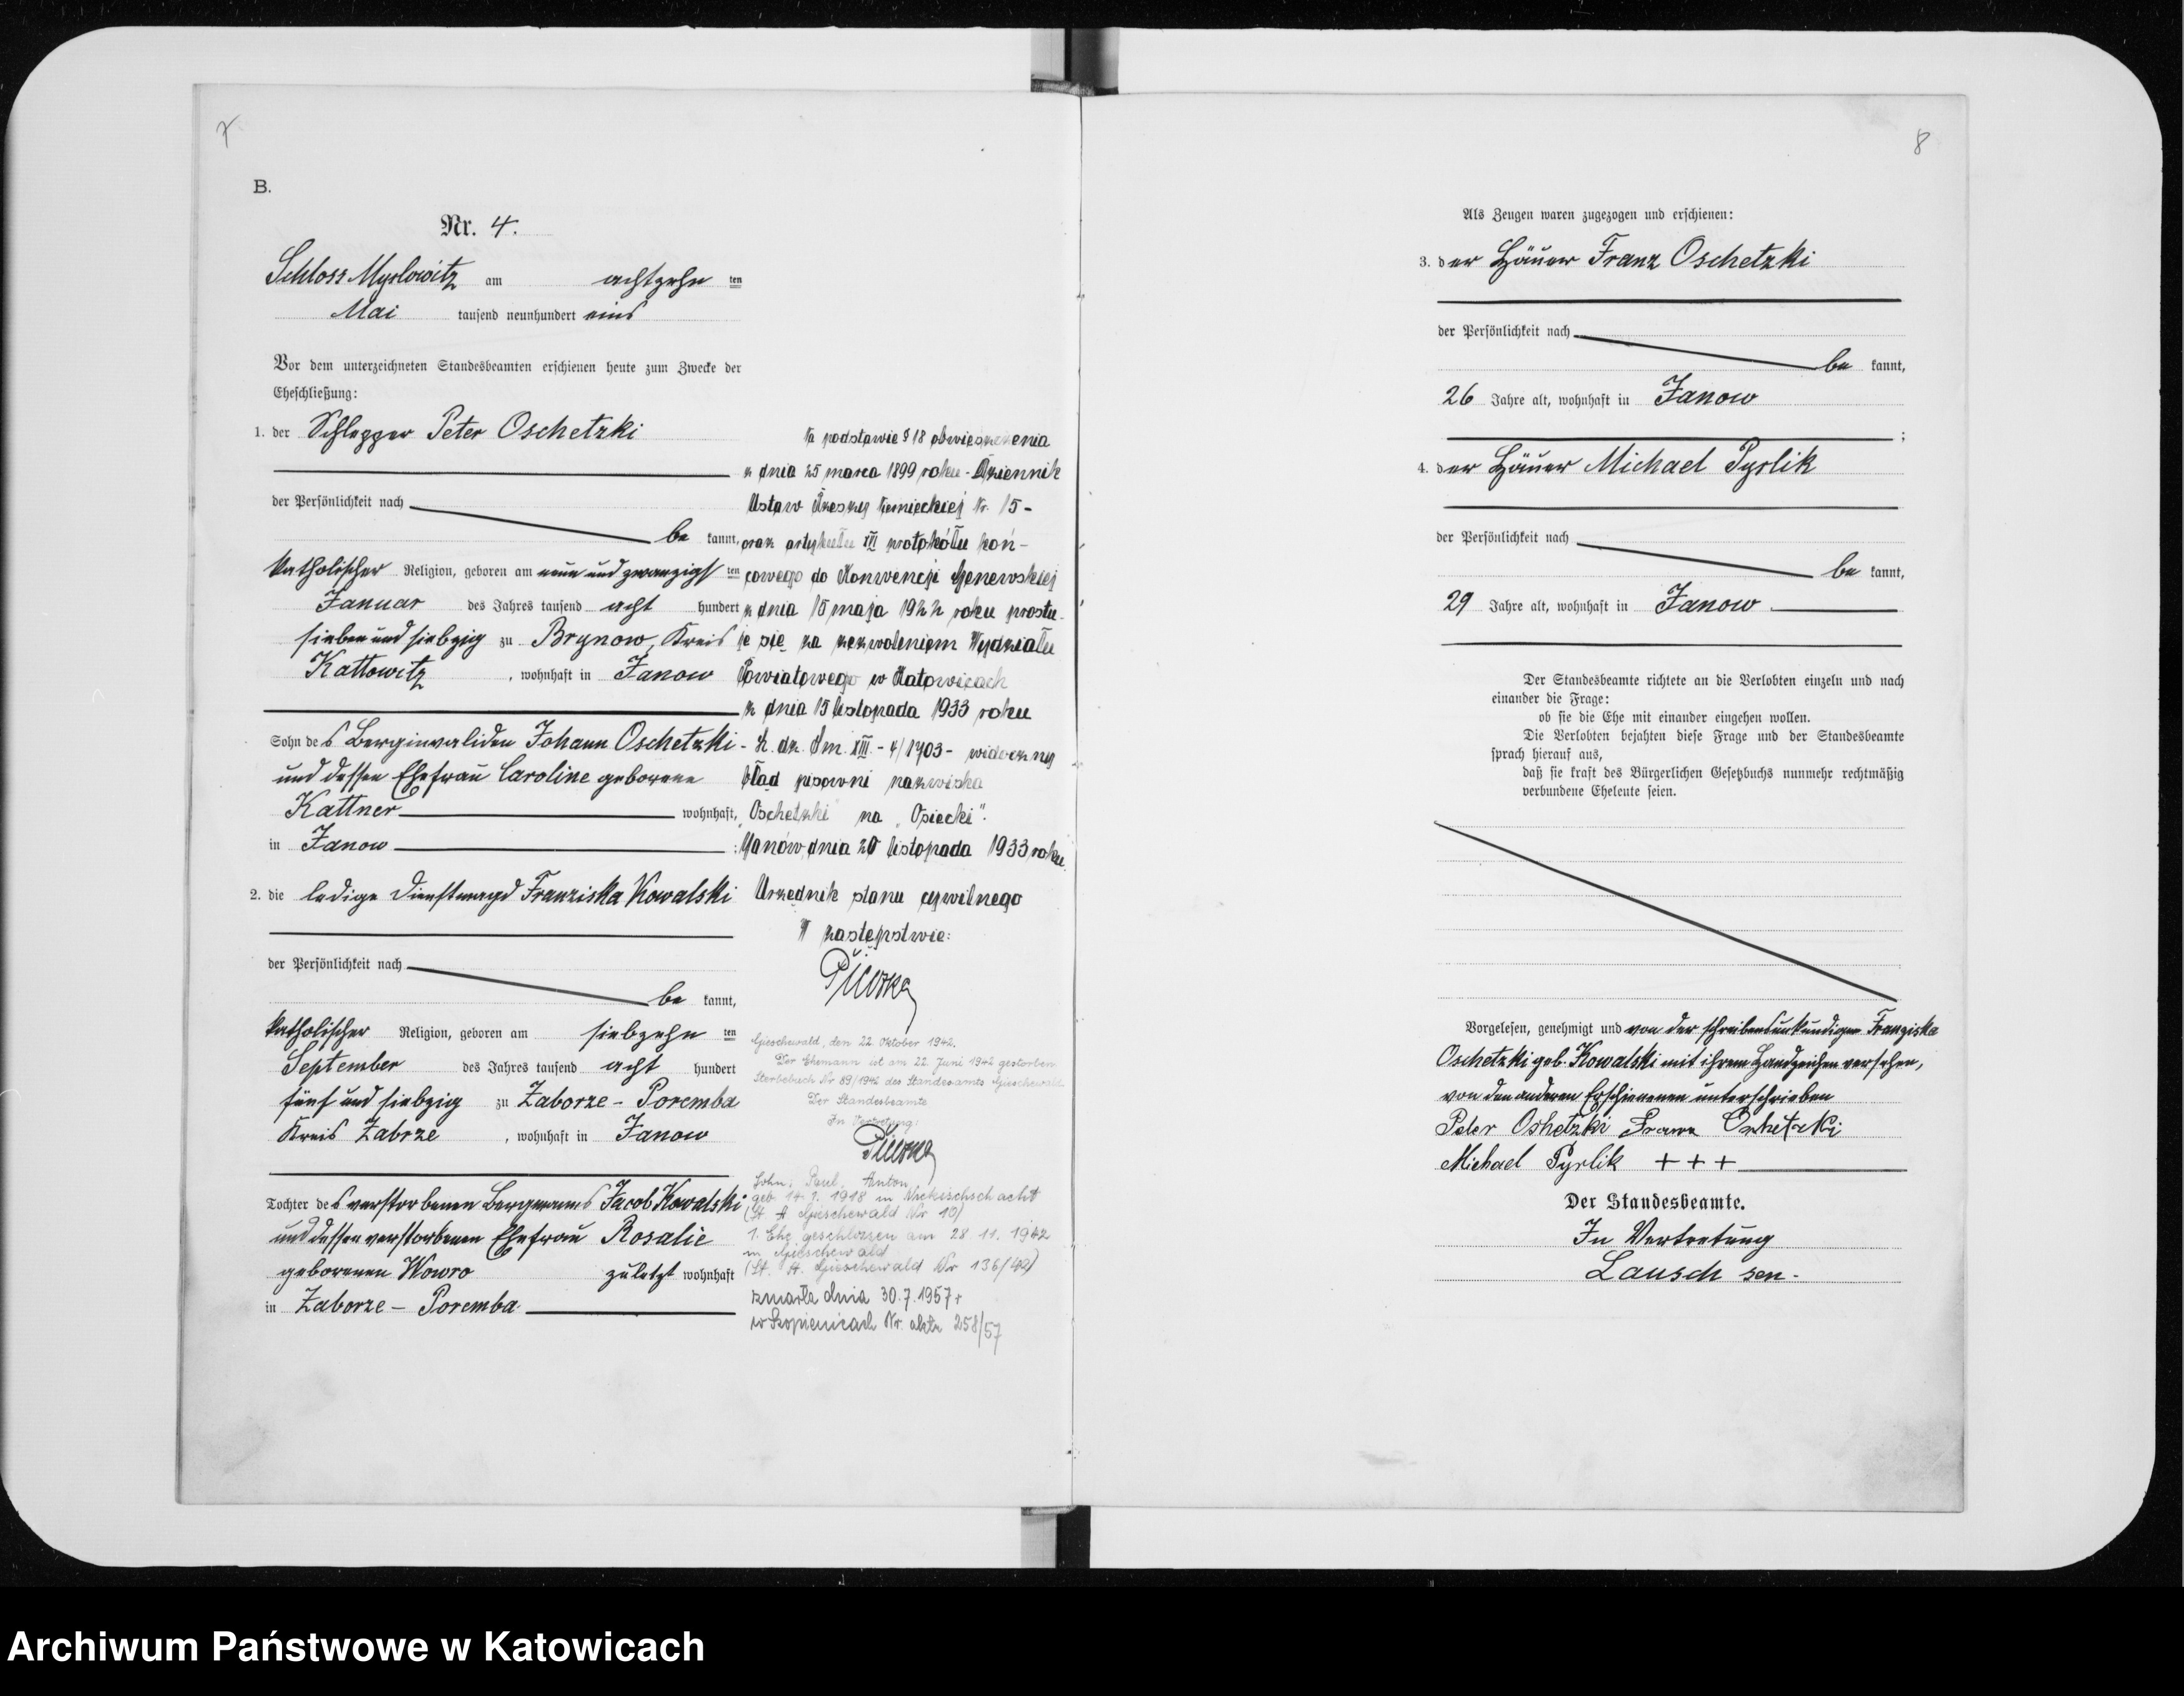 7
B.
Nr. 4.
Schloss Myslowitz am achtzehn ten
Mai tausend neunhundert eins
Vor dem unterzeichneten Standesbeamten erschienen heute zum Zwecke der
Eheschließung:
1. der Schlepper Peter Oschetzki
der Persönlichkeit nach
be kannt,
katholischer Religion, geboren am neun und zwanzigst ten
Januar des Jahres tausend acht hundert
sieben und siebzig zu Brynow, Kreis
Kattowitz, wohnhaft in Janow
Sohn des Berginvaliden Johann Oschetzki
und dessen Ehefrau Caroline geborene
Kattner wohnhaft,
in Janow ;
2. die ledige Dienstmagd Franziska Kowalski
der Persönlichkeit nach
be kannt,
katholischer Religion, geboren am siebzehn ten
September des Jahres tausend acht hundert
fünf und siebzig zu Zaborze - Poremba
Kreis Zabrze, wohnhaft in Janow
Tochter des verstorbenen Bergmanns Jacob Kowalski
und dessen verstorbenen Ehefrau Rosalie
geborenen Wowro zuletzt wohnhaft
in Zaborze - Poremba
Na podstawie § 18 obwieszczenia
z dnia 25 marca 1899 roku - Dziennik
Ustaw Rzeszy Niemieckiej Nr. 15 -
oraz artykułu XIII protokółu koń-
cowego do Konwencji Genewskiej
z dnia 15 maja 1922 roku prostu-
je się za zezwoleniem Wydziału
Powiatowego w Katowicach
z dnia 15 listopada 1933 roku
- L. dz. Am. XIII. - 4/1903 - widoczny
błąd pisowni nazwiska
"Oschetzki" na "Osiecki".
Janów, dnia 20 listopada 1933 roku.
Urzędnik stanu cywilnego
W zastępstwie:
Gieschewald, den 22. Oktober 1942.
Der Ehemann ist am 22. Juni 1942 gestorben
Sterbebuch Nr 89/1942 des Standesamts Gieschewald.
Der Standesbeamte
In Vertretung:
Sohn: Paul, Anton
geb. 14. 7. 1918 in Nickischschacht
(St A Gieschewald Nr 10)
1. Ehe geschlossen am 28. 11. 1942
in Gieschewald
(St. A. Gieschewald Nr 136/42)
zmarła dnia 30.7.1957 r
w Szopienicach Nr. aktu 258/57
8
Als Zeugen waren zugezogen und erschienen:
3. der Häuer Franz Oschetzki
der Persönlichkeit nach
be kannt,
26 Jahre alt, wohnhaft in Janow
;
4. der Häuer Michael Pyrlik
der Persönlichkeit nach
be kannt,
29 Jahre alt, wohnhaft in Janow
Der Standesbeamte richtete an die Verlobten einzeln und nach
einander die Frage:
ob sie die Ehe mit einander eingehen wollen.
Die Verlobten bejahten diese Frage und der Standesbeamte
sprach hierauf aus,
daß sie kraft des Bürgerlichen Gesetzbuchs nunmehr rechtmäßig
verbundene Eheleute seien.
Vorgelesen, genehmigt und von der schreibensunkundigen Franziska
Oschetzki geb. Kowalski mit ihrem Handzeichen versehen,
von den anderen Erschienenen unterschrieben
Peter Oshetzki Franz Oschetzki
Michael Pyrlik + + +
Der Standesbeamte.
In Vertretung
Lausch sen.
Archiwum Państwowe w Katowicach